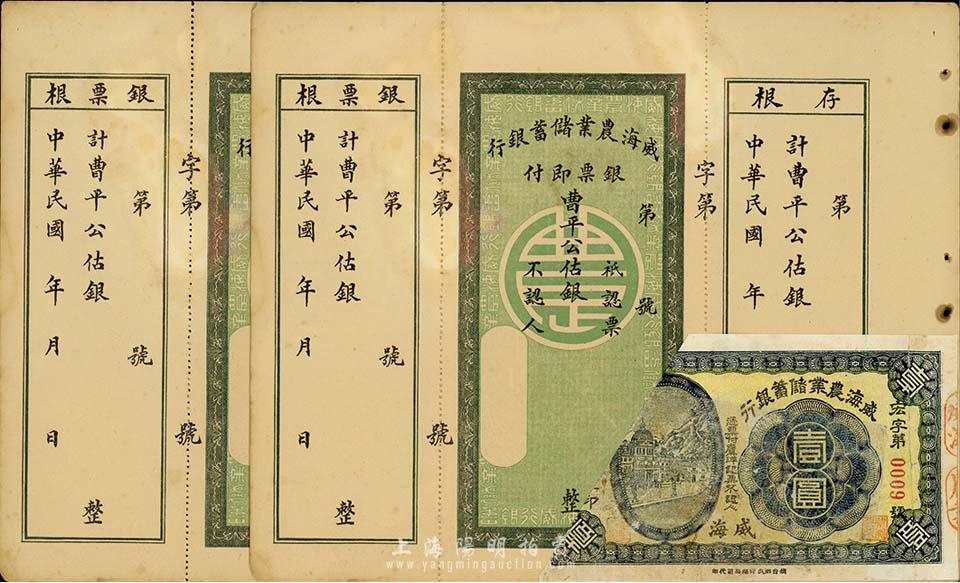 銀票根
第 號
計曹平公估銀 整
中華民國 年 月 日
字第 號
行
銀票根
第 號
計曹平公估銀 整
中華民國 年 月 日
字第 號
威海農業儲蓄銀行
銀票即付
第 號
曹平公估銀 整
祇認票
不認人
字第
存根
第
計曹平公估銀
中華民國 年
威海農業儲蓄銀行
壹圓
宏字第 0009 號
威海
壹
上海陽明拍賣
www.yangmingauction.com